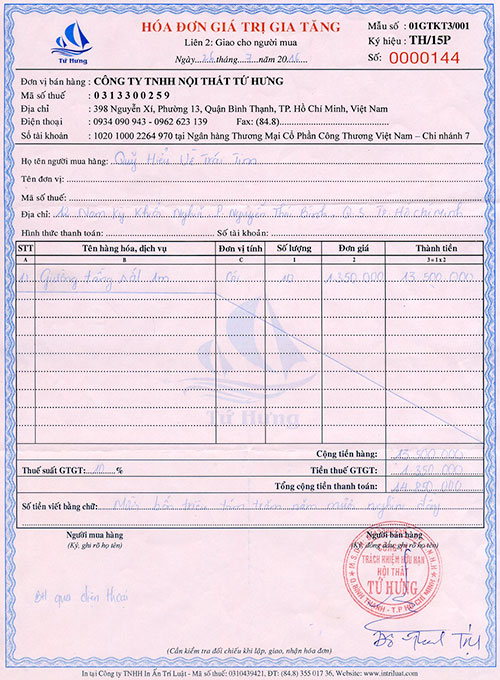 Tứ Hưng
HÓA ĐƠN GIÁ TRỊ GIA TĂNG
Liên 2: Giao cho người mua
Ngày 26 tháng 7 năm 2016
Mẫu số : 01GTKT3/001
Ký hiệu : TH/15P
Số: 0000144
Đơn vị bán hàng : CÔNG TY TNHH NỘI THẤT TỨ HƯNG
Mã số thuế : 0313300259
Địa chỉ : 398 Nguyễn Xí, Phường 13, Quận Bình Thạnh, TP. Hồ Chí Minh, Việt Nam
Điện thoại : 0934 090 943 - 0962 623 139 Fax: (84.8)
Số tài khoản : 1020 1000 2264 970 tại Ngân hàng Thương Mại Cổ Phần Công Thương Việt Nam – Chi nhánh 7
Họ tên người mua hàng: Quỹ Hiểu Về Trái Tim
Tên đơn vị:
Mã số thuế:
Địa chỉ: Nam Kỳ Khởi Nghĩa, P. Nguyễn Thái Bình, Tp. Hồ Chí Minh
Hình thức thanh toán: Số tài khoản:
STT Tên hàng hóa, dịch vụ Đơn vị tính Số lượng Đơn giá Thành tiền
A B C 1 2 3 = 1 x 2
Giường tầng sắt 1m Cái 10 1.350.000 13.500.000
Tứ Hưng
Cộng tiền hàng: 13.500.000
Thuế suất GTGT: 10 % Tiền thuế GTGT: 1.350.000
Tổng cộng tiền thanh toán: 14.850.000
Số tiền viết bằng chữ: Mười bốn triệu tám trăm năm mươi nghìn đồng
Người mua hàng
(Ký, ghi rõ họ tên)
Người bán hàng
(Ký, đóng dấu, ghi rõ họ tên)
TRÁCH NHIỆM HỮU HẠN
NỘI THẤT
TỨ HƯNG
Q.BÌNH THẠNH - T.P HỒ CHÍ MINH
BH qua điện thoại
(Cần kiểm tra đối chiếu khi lập, giao, nhận hóa đơn)
In tại Công ty TNHH In Ấn Trí Luật - Mã số thuế: 0310439421, ĐT: (84.8) 355 017 36, Website: www.intriluat.com